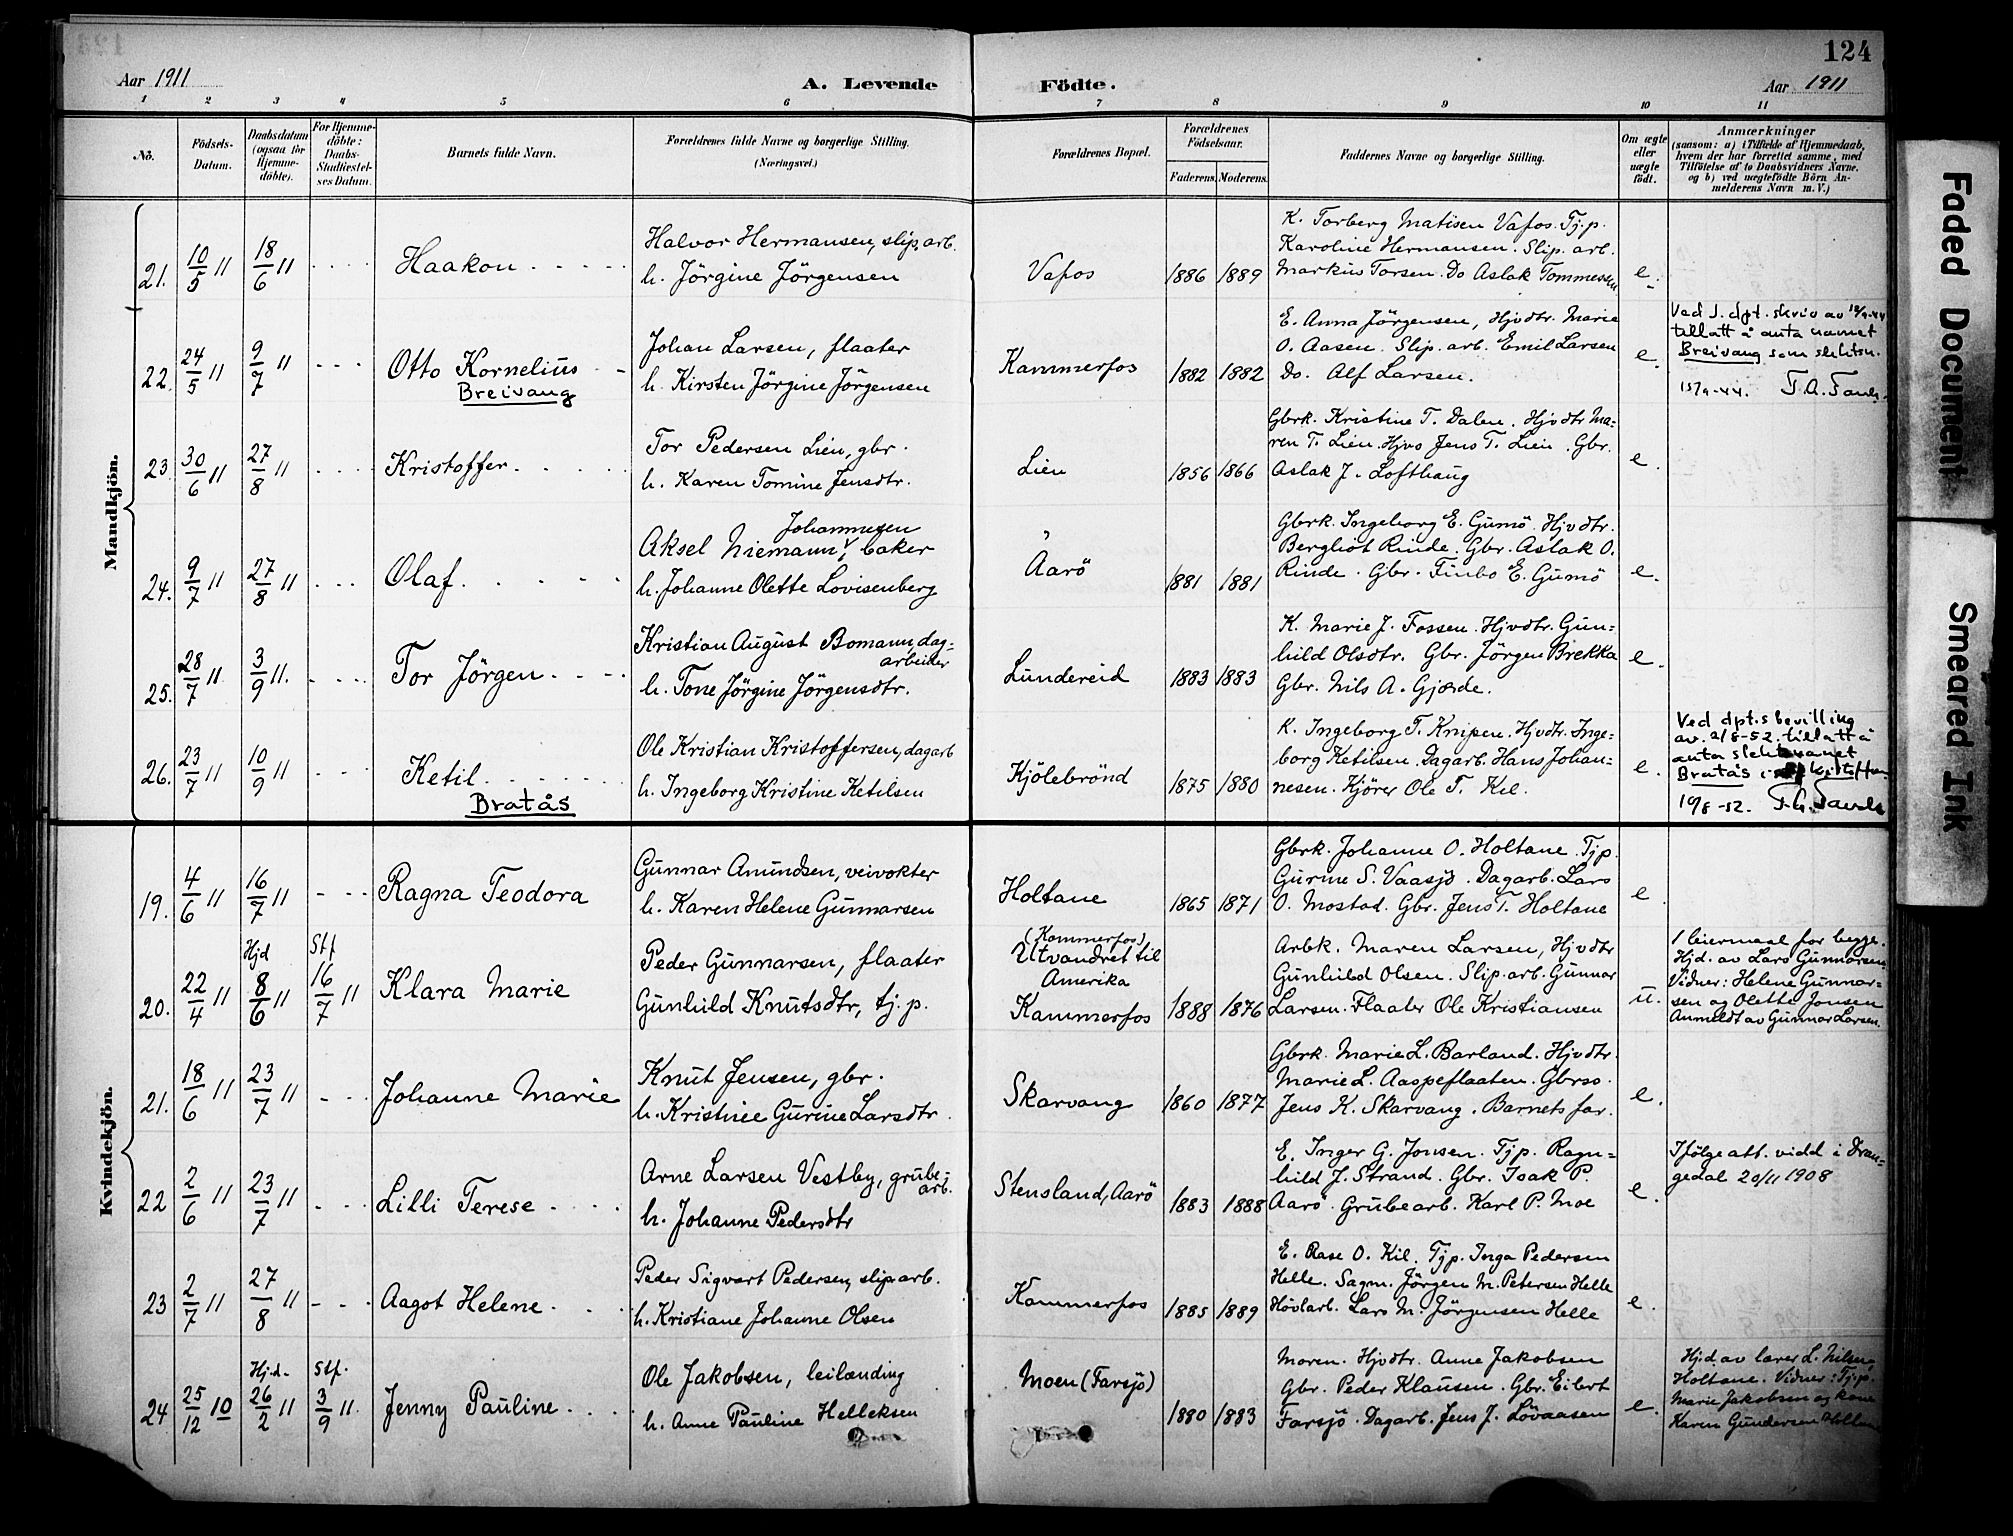 124
Aar 1911
A. Levende Födte.
Aar 1911
1 2 3 4 5 6 7 8 9 10 11
No.
Födsels-Datum.
Daabsdatum (ogsaa for Hjemmedöbte).
For Hjemmedöbte: Daabs-Stadfæstelses Datum.
Barnets fulde Navn.
Forældrenes fulde Navne og borgerlige Stilling.
(Næringsvei.)
Forældrenes Bopæl.
Forældrenes Födselsaar.
Faderens. Moderens.
Faddernes Navne og borgerlige Stilling.
Om ægte eller uægte født.
Anmærkninger
(saasom: a) i Tilfælde af Hjemmedaab, hvem der har forrettet samme, med Tilföielse af to Daabsvidners Navne, og b) ved uægtefödte Börn Anmelderens Navn m. V.)
Mandkjön.
21. 10/5 11 18/6 11 Haakon
Halvor Hermansen, slip. arb.
h. Jörgine Jörgensen
Vafos 1886 1889
K. Torberg Matisen Vafos. Tj.p.
Karoline Hermansen. Slip. arb.
Markus Torsen. Do Aslak Tommesen
e.
22. 24/5 11 9/7 11 Otto Kornelius
Breivang
Johan Larsen, flaater
h. Kirsten Jörgine Jörgensen
Kammerfos 1882 1882
E. Anna Jörgensen, Hjvdtr. Marie
O. Aasen. Slip. arb. Emil Larsen
Do. Alf Larsen.
e.
Ved J. dpt. skriv av
tillatt å anta namnet
Breivang som slektsn.
15/9-44.
23 30/6 11 27/8 11 Kristoffer
Tor Pedersen Lien, gbr.
h. Karen Tomine Jensdtr.
Lien 1856 1866
Gbrk. Kristine T. Dalen. Hjvdtr Ma=
ren T. Lien. Hjvs Jens T. Lien. Gbr.
Aslak J. Lofthaug
e.
24. 9/7 11 27/8 11 Olaf
Johannesen
Aksel Niemann, baker
h. Johanne Olette Lovisenberg
Aarö 1881 1881
Gbrk. Ingeborg E. Gumö. Hjvdtr.
Bergliot Rinde. Gbr. Aslak O.
Rinde. Gbr. Finbo E. Gumö
e.
25. 28/7 11 3/9 11. Tor Jörgen
Kristian August Bomann, dag=
arbeider
h. Tone Jörgine Jörgensdtr.
Lundereid 1883 1883
K. Marie J. Fossen. Hjvdtr. Gun=
hild Olsdtr. Gbr. Jörgen Brekka
Gbr. Nils A. Gjærde.
e.
26. 23/7 11 10/9 11 Ketil
Bratås
Ole Kristian Kristoffersen, dagarb
h. Ingeborg Kristine Ketilsen
Kjölebrönd 1875 1880
K. Ingeborg T. Knipen. Hjvdtr. Inge=
borg Ketilsen. Dagarb. Hans Johan=
nesen. Kjörer Ole T. Kil.
e.
Ved dpt.s bevilling
av. 2/8-52. tillatt å
anta slektsnamnet
Bratås
19/8-52.
Kvindekjön.
19. 4/6 11 16/7 11 Ragna Teodora
Gunnar Amundsen, veivokter
h. Karen Helene Gunnarsen
Holtane 1865 1871
Gbrk. Johanne O. Holtane. Tjp.
Gurine S. Vaasjö. Dagarb. Lars
O. Mostad. Gbr. Jens T. Holtane
e.
Hjd Stf
20. 22/4 11 8/6 11 16/7 11 Klara Marie
Peder Gunnarsen, flaater
Gunhild Knutsdtr, tj.p.
(Kammerfos)
Utvandret til
Amerika
Kammerfos 1888 1876
Arbk. Maren Larsen, Hjvdtr
Gunhild Olsen. Slip. arb. Gunnar
Larsen. Flaater Ole Kristiansen
u.
1 leiermaal for begge.
Hjd. av Lars Gunnarsen
Vidner: Helene Gunnar=
sen og Olette Jonsen
Anmeldt av Gunnar Larsen.
21. 18/6 11 23/7 11 Johanne Marie
Knut Jensen, gbr.
h. Kristine Gurine Larsdtr.
Skarvang 1860 1877
Gbrk. Marie L. Barland. Hjvdtr.
Marie L. Aaspeflaaten. Gbrss.
Jens K. Skarvang. Barnets far.
e.
22 2/6 11 23/7 11 Lilli Terese
Arne Larsen Vestby, grube=
arb.
h. Johanne Pedersdtr
Stensland, Aarö 1883 1888
E. Inger G. Jonsen. Tjp. Ragn=
hild J. Strand. Gbr. Isak P.
Aarö. Grubearb. Karl P. Moe
e.
Ifölge att. vidd i Dran=
gedal 20/11 1908
23 2/7 11 27/8 11 Aagot Helene
Peder Sigvart Pedersen, slip. arb.
h. Kristiane Johanne Olsen
Kammerfos 1885 1889
E. Aase O. Kil. Tjp. Inga Pedersen
Helle. Sagm. Jörgen M. Petersen Helle
Hövlarb. Lars M. Jörgensen Helle
e.
Hjd. Stf.
24 25/12 10 26/2 11 3/9 11. Jenny Pauline
Ole Jakobsen, leilænding
h. Anne Pauline Helleksen
Moen (Farsjö) 1880 1883
Moren. Hjvdtr. Anne Jakobsen
Gbr. Peder Klausen. Gbr. Eilert
Farsjö. Dagarb. Jens J. Lövaasen
e.
Hjd av lærer L. Nilsen,
Holtane. Vidner: Tj.p.
Marie Jakobsen og kone
Karen Gundersen
Faded Document
Smeared Ink